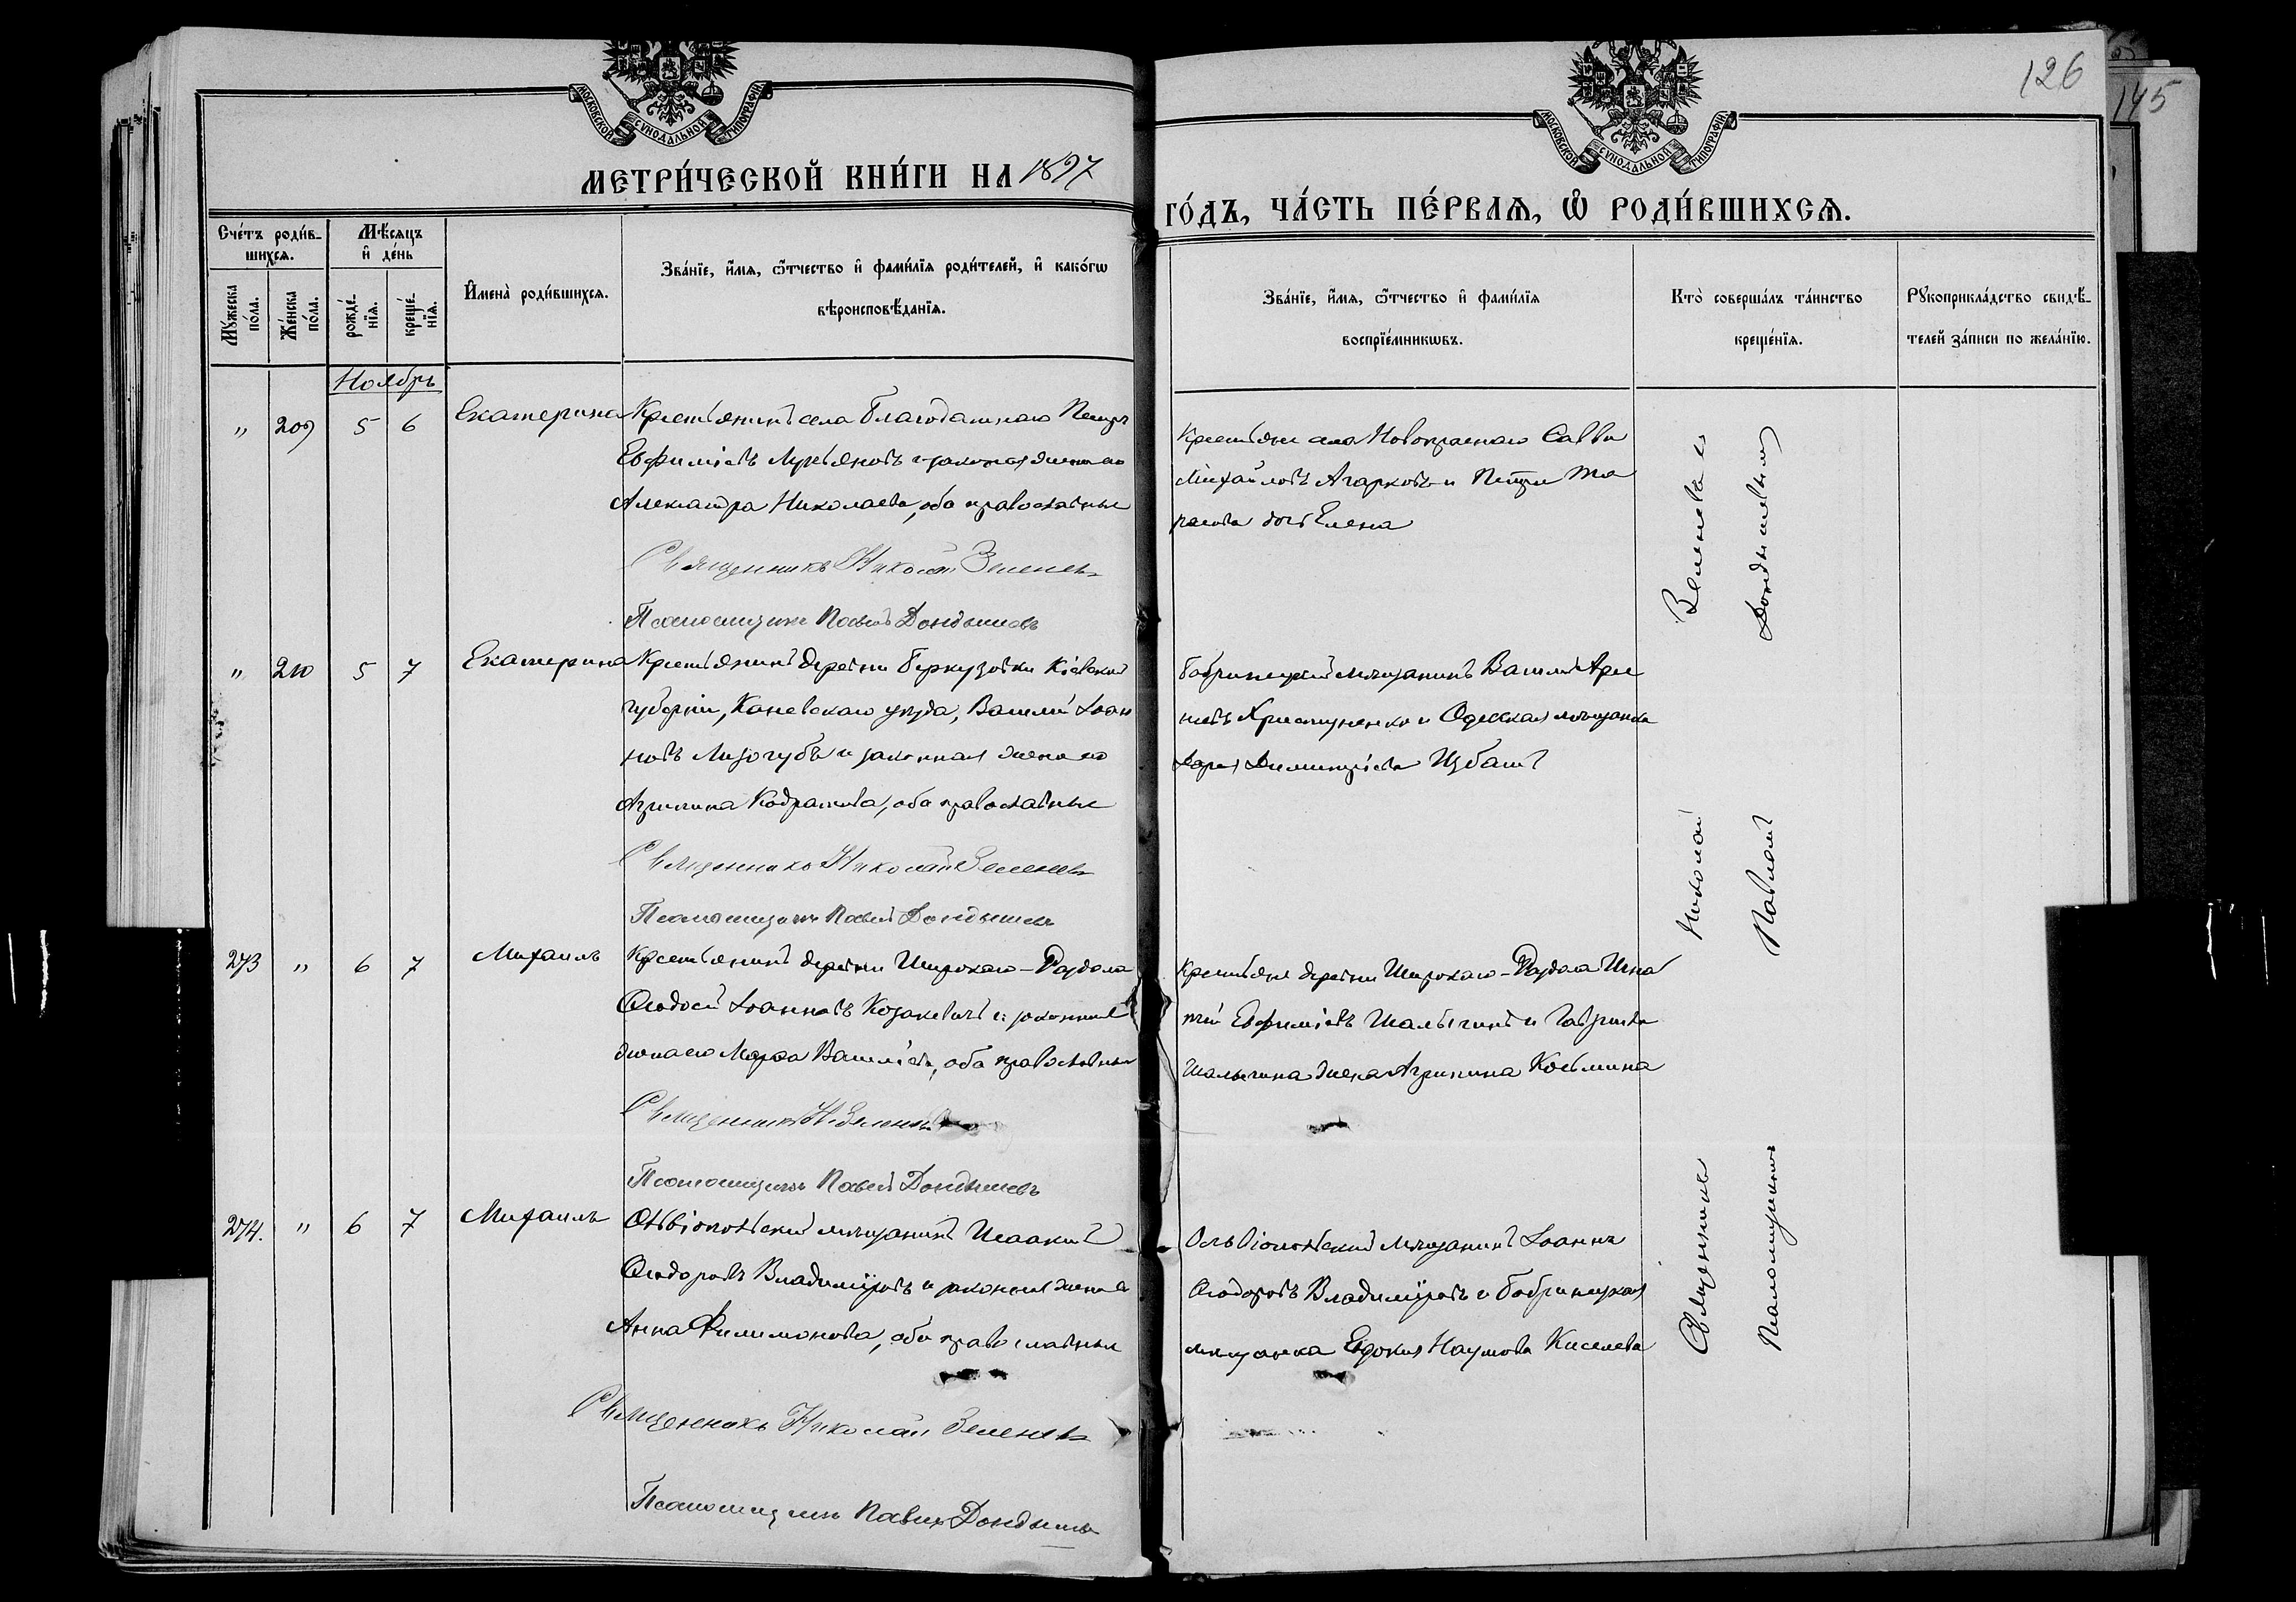 126
145
МОСКОВСКОЙ СѴНОДАЛЬНОЙ ТИПОГРАФІИ
МОСКОВСКОЙ СѴНОДАЛЬНОЙ ТИПОГРАФІИ
МЕТРИ́ЧЕСКОЙ КНИ́ГИ НА 1897
ГО́ДЪ, ЧА́СТЬ ПЕ́РВАѦ, Ѽ РОДИ́ВШИХСѦ.
Сче́тъ роди́в-
шихсѧ.
Мꙋ́жеска по́ла.
Же́нска по́ла.
Мѣ́сѧцъ
и҆ де́нь
рожде́-
нїѧ.
креще́-
нїѧ.
И҆мена̀ роди́вшихсѧ.
Зва́нїе, и҆́мѧ, ѻ҆́тчество и҆ фами́лїѧ роди́телей, и҆ како́гѡ
вѣроисповѣ́данїѧ.
Зва́нїе, и҆́мѧ, ѻ҆́тчество и҆ фами́лїѧ
воспрїе́мникѡвъ.
Кто̀ соверша́лъ та́инство
креще́нїѧ.
Рꙋкоприкла́дство свидѣ́-
телей за́писи по жела́нїю.
Ноябрь
" 209 5 6 Екатерина
Крестьянинъ села Благодатнаго Петръ
Евфиміевъ Лукьяновъ и законная жена его
Александра Николаева, оба православные
Священникъ Николай Зеленевъ
Псаломщикъ Павелъ Дондышевъ
Крестьяне села Новокраснаго Савва
Михайловъ Агарковъ и Петра Та
расова дочь Елена
" 210 5 7 Екатерина
Крестьянинъ деревни Беркузовки Кіевской
губерніи, Каневскаго уѣзда, Василій Іоан
новъ Лизогубъ и законная жена его
Агрипина Кодратова, оба православные
Священникъ Николай Зеленевъ
Псаломщикъ Павелъ Дондышевъ
Бобринецкій мѣщанинъ Василій
и Одесская мѣщанка
Дарія Димитріева
273 " 6 7 Михаилъ
Крестьянинъ деревни Широкаго-Раздола
Ѳеодосій Іоанновъ Козакевичъ и законная
жена его Марѳа Василіева, оба православные
Священникъ Н. Зеленевъ
Псаломщикъ Павелъ Дондышевъ
Крестьяне деревни Широкаго-Раздола Игна
тій Евфиміевъ Шалыгинъ и Гавріила
Шалыгина жена Агрипина Косьмина
274. " 6 7 Михаилъ
Ольвіопольскій мѣщанинъ Исаакій
Ѳеодоровъ Владиміровъ и законная жена его
Анна Филимонова, оба православные
Священникъ Николай Зеленевъ
Псаломщикъ Павелъ Дондышевъ
Ольвіопольскій мѣщанинъ Іоаннъ
Ѳеодоровъ Владиміровъ и Бобринецкая
мѣщанка Евдокія Наумова Киселева
Священникъ Николай Зеленевъ съ
Псаломщикомъ Павломъ Дондышевымъ